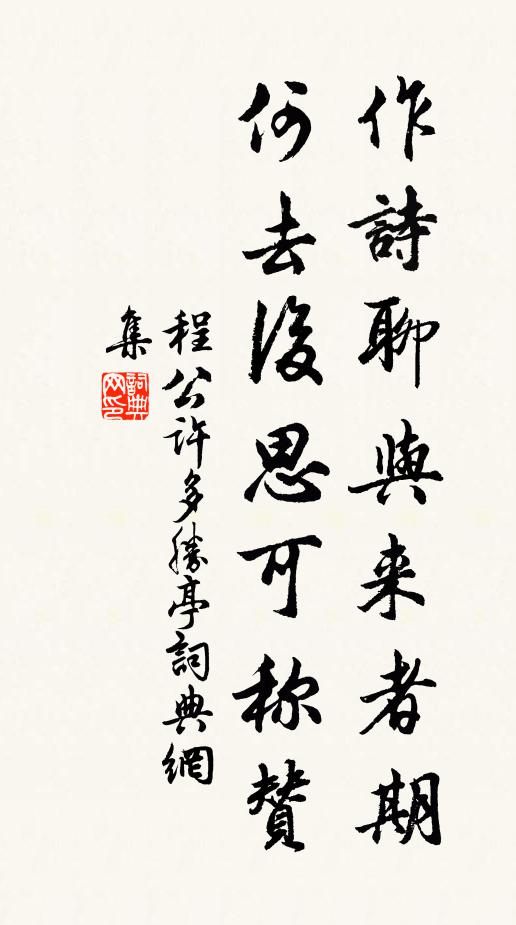 作詩聊與来者期
何去後思可称贊
程公許多勝亭詞典網
集
詞典
网印